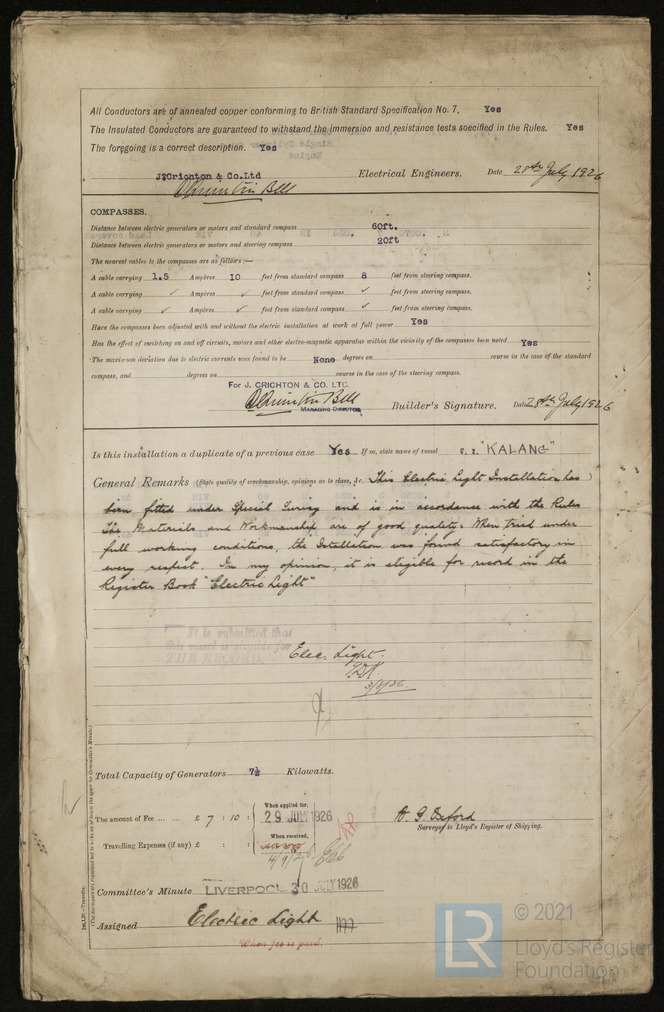 All Conductors are of annealed copper conforming to British Standard Specification No. 7. Yes
The Insulated Conductors are guaranteed to withstand the immersion and resistance tests specified in the Rules. Yes
The foregoing is a correct description. Yes
J. Crichton & Co. Ltd Electrical Engineers. Date 28th July 1926
COMPASSES.
Distance between electric generators or motors and standard compass 60ft.
Distance between electric generators or motors and steering compass 20ft
The nearest cables to the compasses are as follows:—
A cable carrying 1.5 Ampères 10 feet from standard compass 8 feet from steering compass.
A cable carrying ✓ Ampères ✓ feet from standard compass ✓ feet from steering compass.
A cable carrying ✓ Ampères ✓ feet from standard compass ✓ feet from steering compass.
Have the compasses been adjusted with and without the electric installation at work at full power Yes
Has the effect of switching on and off circuits, motors and other electro-magnetic apparatus within the vicinity of the compasses been noted Yes
The maximum deviation due to electric currents was found to be None degrees on course in the case of the standard
compass, and degrees on course in the case of the steering compass.
For J. CRICHTON & CO. LTD.
MANAGING DIRECTOR
Builder's Signature. Date 28th July 1926
Is this installation a duplicate of a previous case Yes If so, state name of vessel s.s. "KALANG"
General Remarks (State quality of workmanship, opinions as to class, &c. This Electric Light Installation has
been fitted under Special Survey and is in accordance with the Rules
The Materials and Workmanship are of good quality. When tried under
full working conditions, the Intellation was found satisfactory in
every respect. In my opinion, it is eligible for record in the
Register Book "Electric Light"
It is submitted that
this vessel is eligible for
THE RECORD.
Elec. Light.
Total Capacity of Generators 7½ Kilowatts.
The amount of Fee ... ... £ 7 : 10 :
When applied for,
29 JULY 1926
Travelling Expenses (if any) £ : :
When received,
Surveyor to Lloyd's Register of Shipping.
Committee's Minute LIVERPOOL 30 JULY 1926
Assigned Electric Light
When fee is paid.
© 2021
Lloyd's Register
Foundation
LR